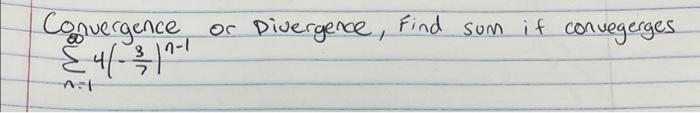 Convergence or Divergence, Find sum if convegerges
∞
Σ 4(-3/7)^(n-1)
n=1